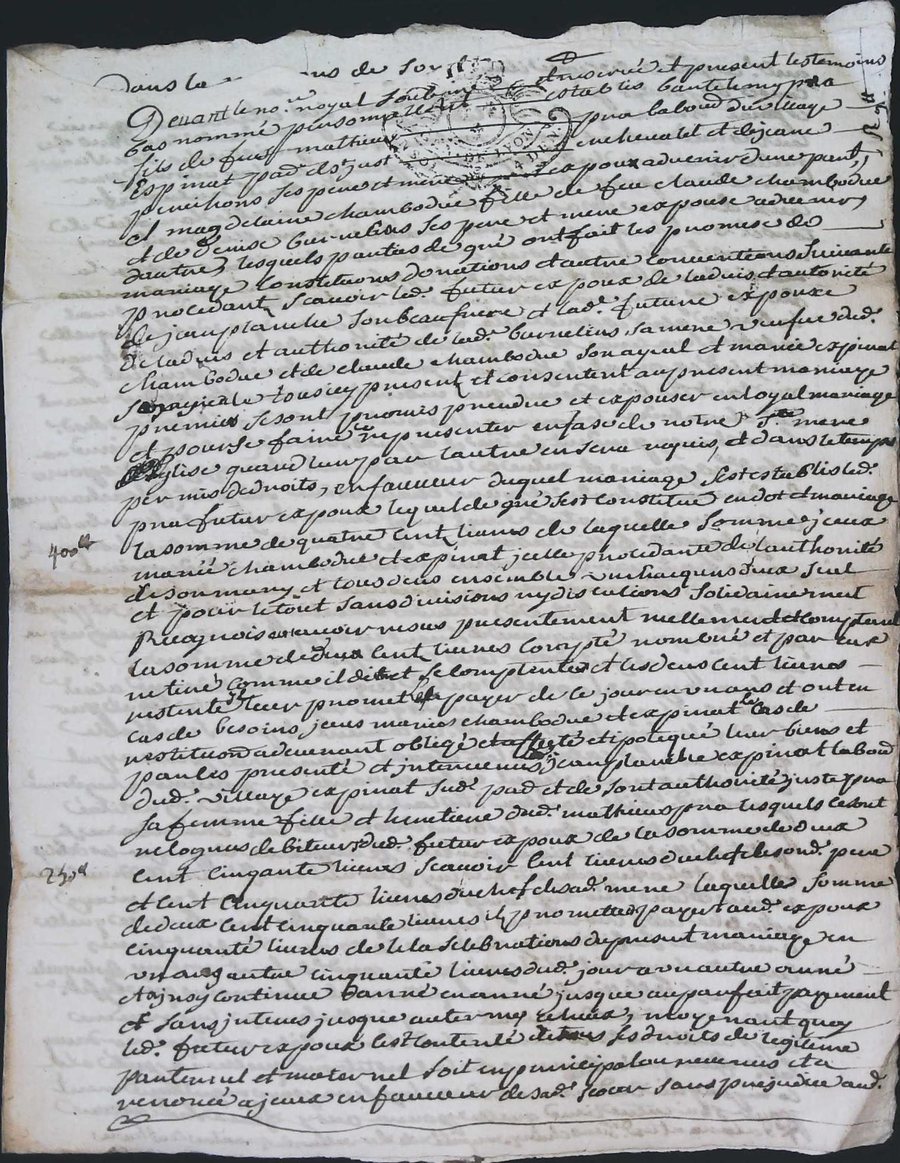 dans la
Devant le no.re royal soubsigné et presents les temoins
bas nommé personnellement establis barthelemy pra
fils de feux mathieu pra laboud du village
Espinat pad. de st just en chevalet et de jeane
perichons ses pere et mere expoux advenir d'une part,
et magdelaine chambodue fille de feu claude chambodue
et de denise burnelius ses pere et mere expouse advenir
dautre, lesquels parties de gré ont fait les promese de
mariage constitutions donnations et autre conventions suivante
procedant scavoir led. futur expoux de ladvis et autorité
de jean planche son beaufrere et lad. future expouxe
de ladvis et authorité de lad. burnelius sa mere veufve dud.
chambodue et de claude chambodue son ayeul et marie expinat
son ayeule tous icy present et consentent au present mariage
premier se sont promis prendre et expouser en loyal mariage
et pour se faire se representer en fase de notre ste mere
Eglise quand lun par lautre en sera requis, et dans le temps
permis de droits, en faveur duquel mariage sest establis led.
pra futur expoux lequel de gré sest constitué en dot et mariage
400tt
la somme de quatre cent livres de laquelle somme jceux
marié chambodue et expinat jcelle procedante de lauthorité
de son mary et tous deux ensemble un chacquns deux seul
et pour le tout sans divisions ny discutions solidairement
Recognoise avoir resus presentement reellement et comptant
la somme de deux cent livres compté nombré et par eux
retiré comme il dit et se contentés et les deux cent livres
restente leur promet payer de ce jour en un ans et ont en
cas de besoins jceux mariés chambodue et expinat le cas de
restitution advenant obligé et affecté et ipotequé leur biens et
par les presente et intervenus jean planche expinat laboud
dud. village expinat sud. pad et de sont authorité juste pra
sa femme fille et heritiere dud. mathieu pra lesquels se sont
recognus debiteurs dud. futur expoux de la somme de deux
250tt
cent cinquante livres scavoir cent livres du chef de sond. pere
et cent cinquante livres du chef de sad. mere laquelle somme
de deux cent cinquante livres il promettent payer aud. expoux
cinquante livres de la selebrations du present mariage en
un ans autre cinquante livres dud. jour a un autre anné
et ainsy continué danné en anné jusque au parfait payement
et sans interes jusque au termes echeus, moyenant quoy
led. futur expoux sest contenté de tous ses droits de legitime
panternel et maternel soit en principal ou revenus et a
renoncé a jceux en faveur de sad. soeur sans prejudice aud.